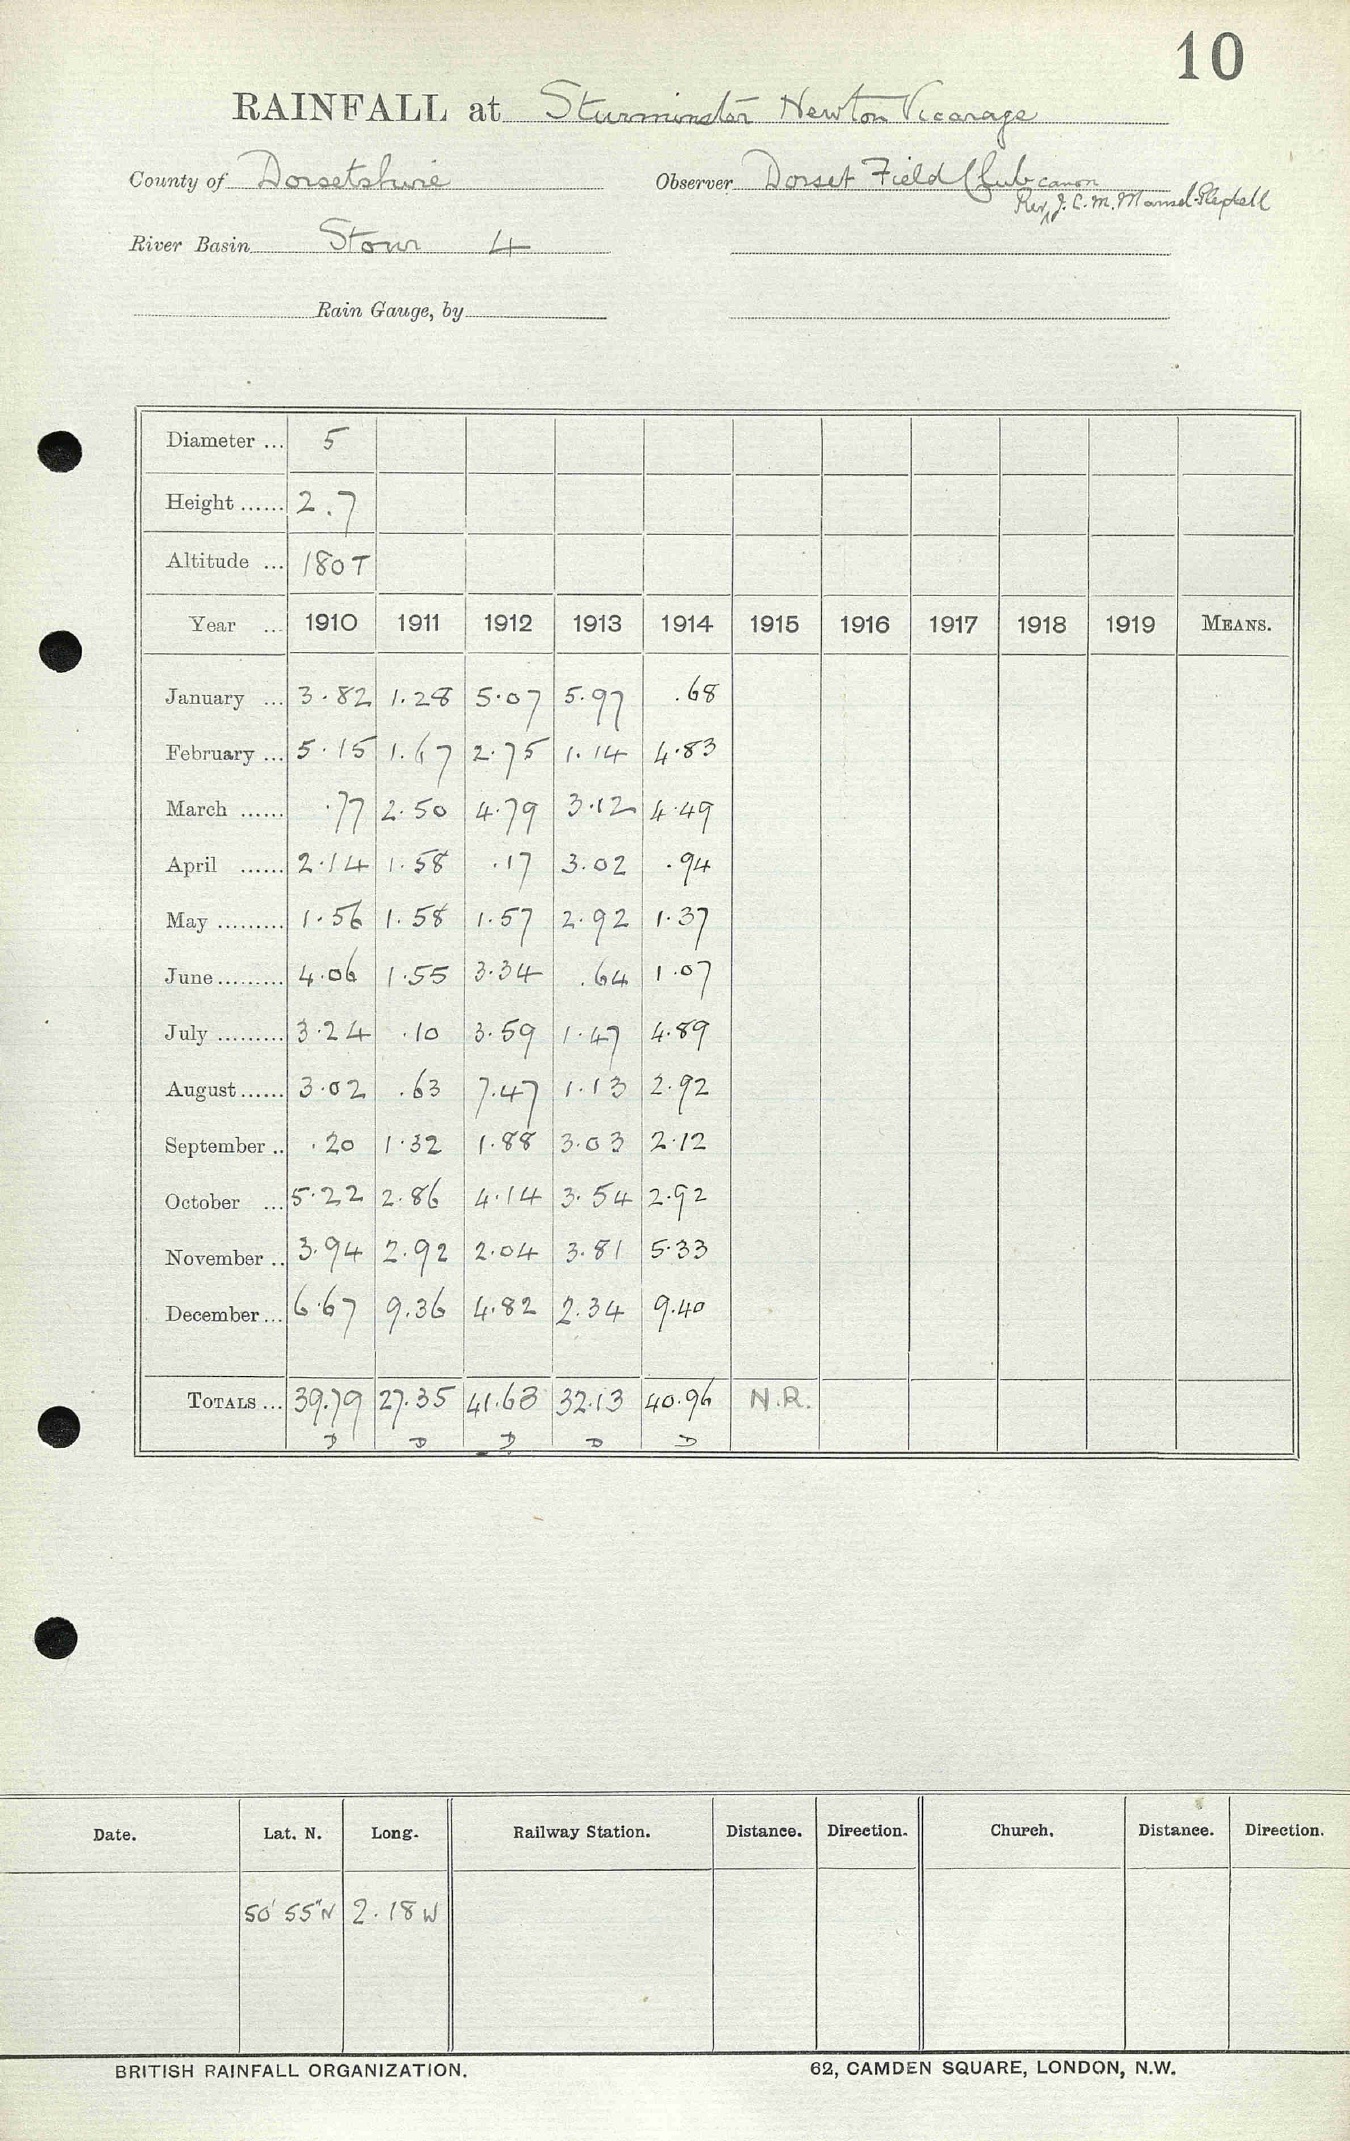 10
RAINFALL at Sturminster Newton Vicarage
County of Dorsetshire Observer Dorset Field Club canon
Rev J. C. M. Mansel-Pleydell
River Basin Stour 4
Rain Gauge, by
Diameter ... 5
Height ...... 2.7
Altitude ... 180T
Year ... 1910 1911 1912 1913 1914 1915 1916 1917 1918 1919 MEANS.
January ... 3.82 1.28 5.07 5.97 .68
February ... 5.15 1.67 2.75 1.14 4.83
March ...... .77 2.50 4.79 3.12 4.49
April ...... 2.14 1.58 .17 3.02 .94
May ......... 1.56 1.58 1.57 2.92 1.37
June......... 4.06 1.55 3.34 .64 1.07
July ......... 3.24 .10 3.59 1.47 4.89
August...... 3.02 .63 7.47 1.13 2.92
September .. .20 1.32 1.88 3.03 2.12
October ... 5.22 2.86 4.14 3.54 2.92
November .. 3.94 2.92 2.04 3.81 5.33
December ... 6.67 9.36 4.82 2.34 9.40
TOTALS ... 39.79 27.35 41.63 32.13 40.96 N.R.
D D D D D
Date. Lat. N. Long. Railway Station. Distance. Direction. Church. Distance. Direction.
50' 55"N 2.18 W
BRITISH RAINFALL ORGANIZATION. 62, CAMDEN SQUARE, LONDON, N.W.